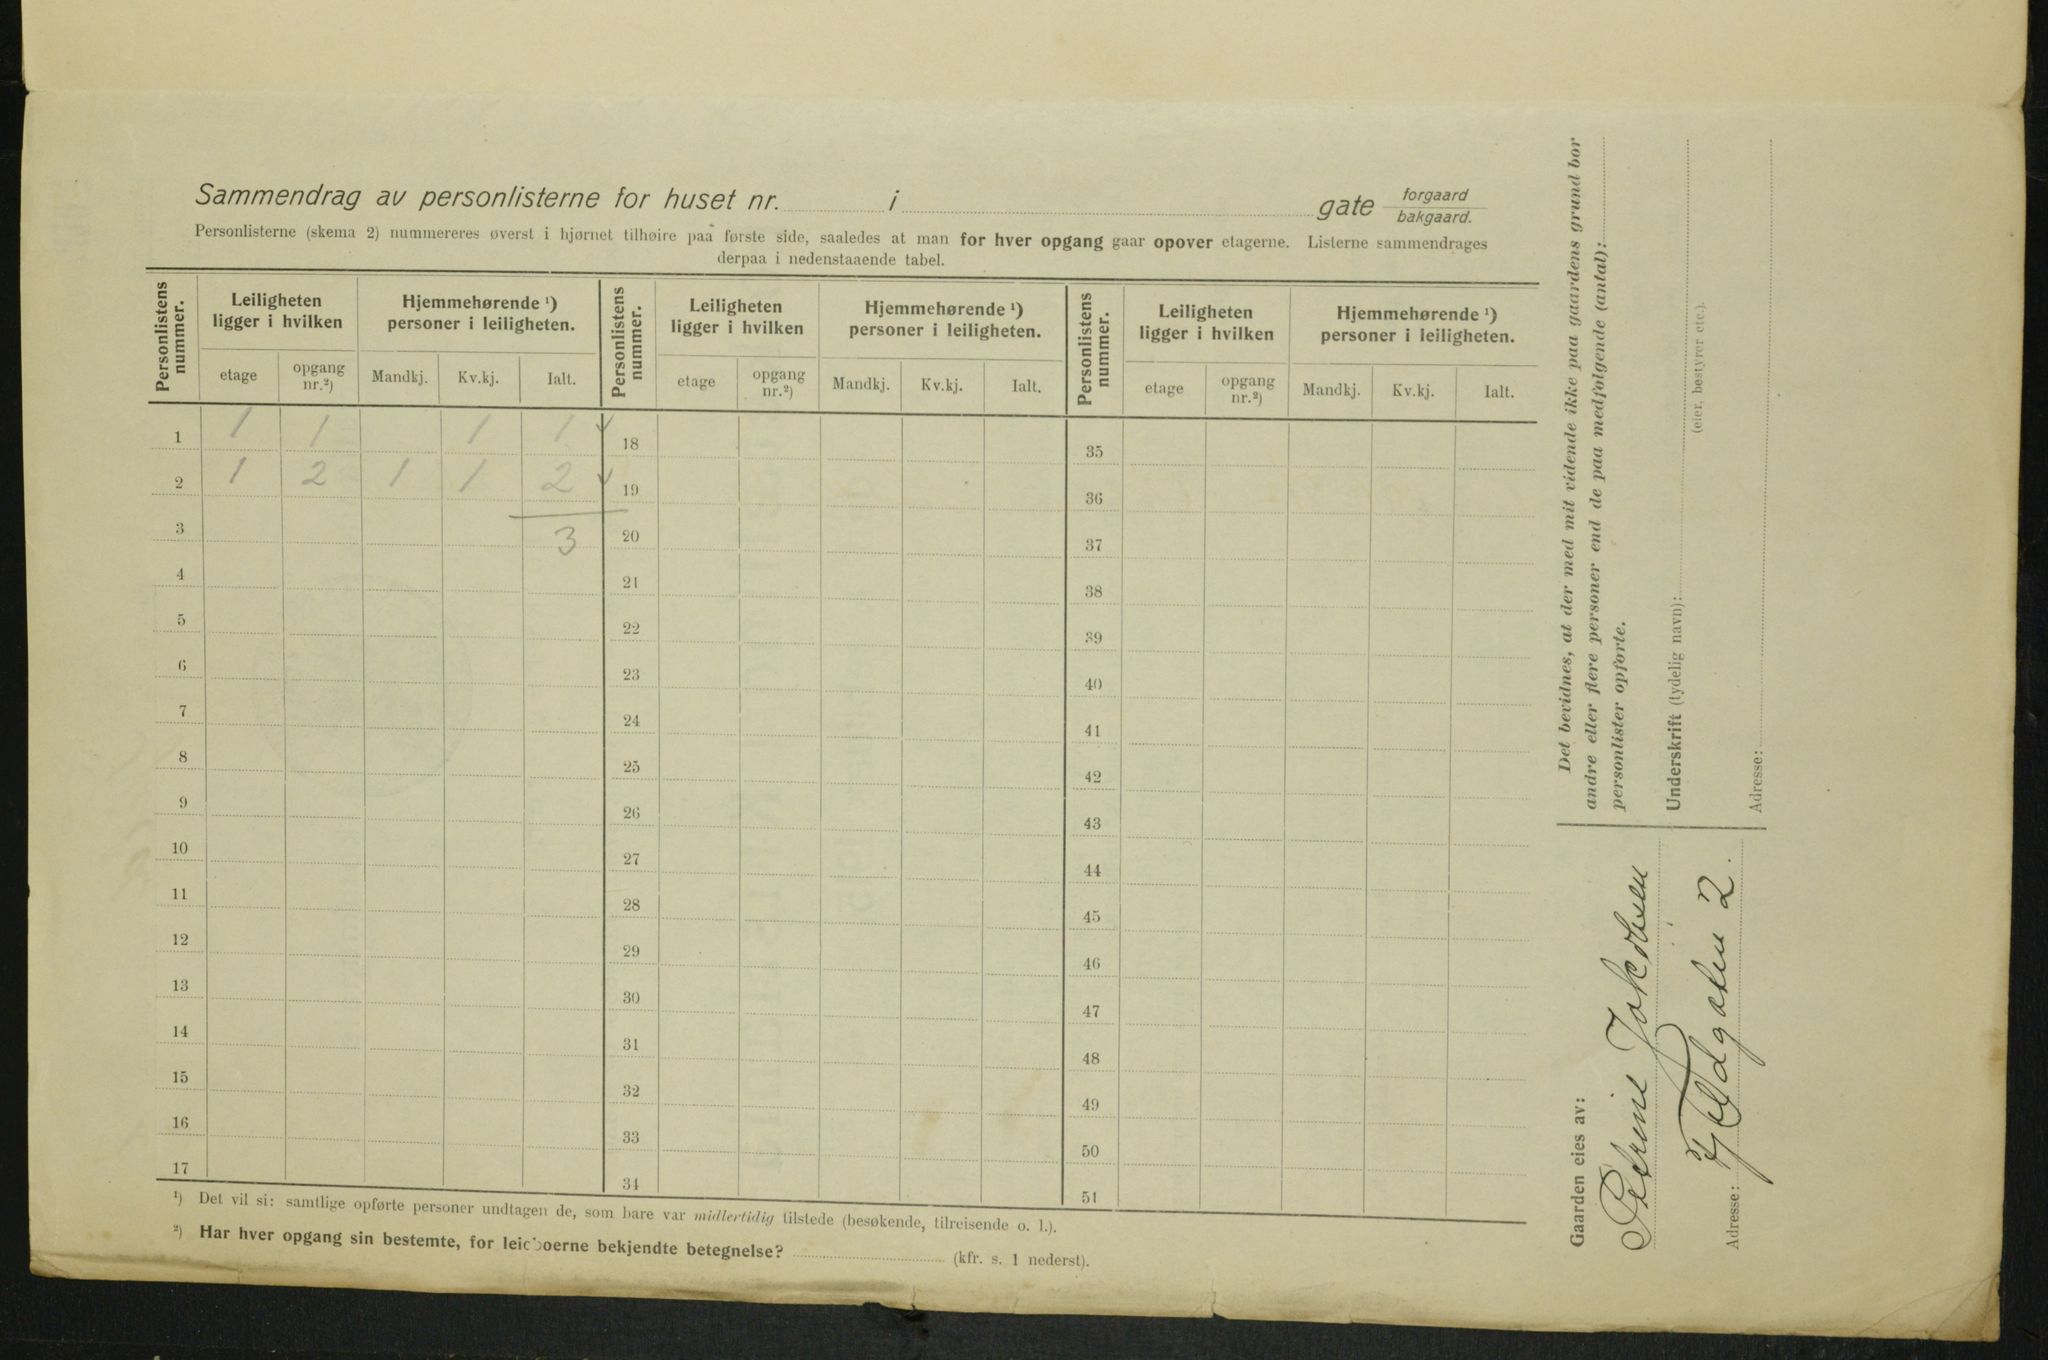 Sammendrag av personlisterne for huset nr. i gate forgaard bakgaard.
Personlisterne (skema 2) nummereres øverst i hjørnet tilhøire paa første side, saaledes at man for hver opgang gaar opover etagerne. Listerne sammendrages
derpaa i nedenstaaende tabel.
Personlistens nummer. Leiligheten ligger i hvilken Hjemmehørende ¹) personer i leiligheten. Personlistens nummer. Leiligheten ligger i hvilken Hjemmehørende ¹) personer i leiligheten. Personlistens nummer. Leiligheten ligger i hvilken Hjemmehørende ¹) personer i leiligheten.
etage opgang nr.²) Mandkj. Kv.kj. Ialt. etage opgang nr.²) Mandkj. Kv.kj. Ialt. etage opgang nr.²) Mandkj. Kv.kj. Ialt.
1 1 1 1 1 18 35
2 1 2 1 1 2 19 36
3 3 20 37
4 21 38
5 22 39
6 23 40
7 24 41
8 25 42
9 26 43
10 27 44
11 28 45
12 29 46
13 30 47
14 31 48
15 32 49
16 33 50
17 34 51
¹) Det vil si: samtlige opførte personer undtagen de, som bare var midlertidig tilstede (besøkende, tilreisende o. l.).
²) Har hver opgang sin bestemte, for leieboerne bekjendte betegnelse? (kfr. s. 1 nederst).
Gaarden eies av:
Petrine Jakobsen
Adresse: Fjeldgaten 2.
Det bevidnes, at der med mit vidende ikke paa gaardens grund bor
andre eller flere personer end de paa medfølgende (antal):
personlister opførte.
Underskrift (tydelig navn):
(eier, bestyrer etc.).
Adresse: